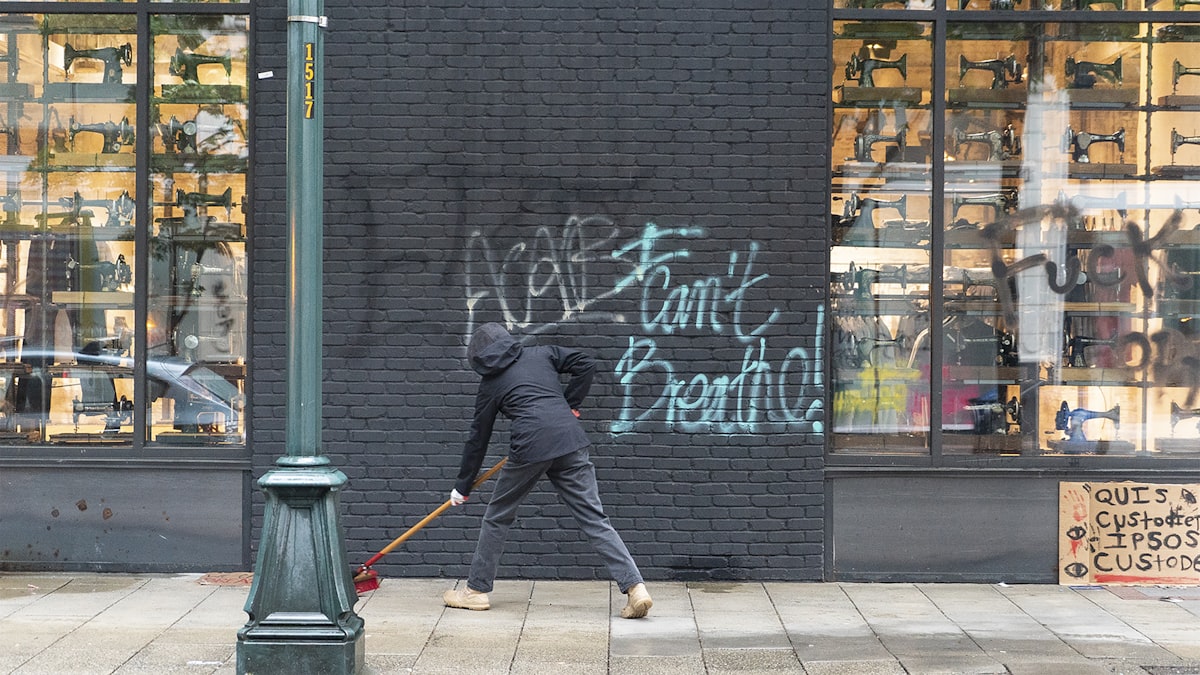 1517
I
Can't
Breathe!
Fuck
QUIS
CUSTODIET
IPSOS
CUSTODE